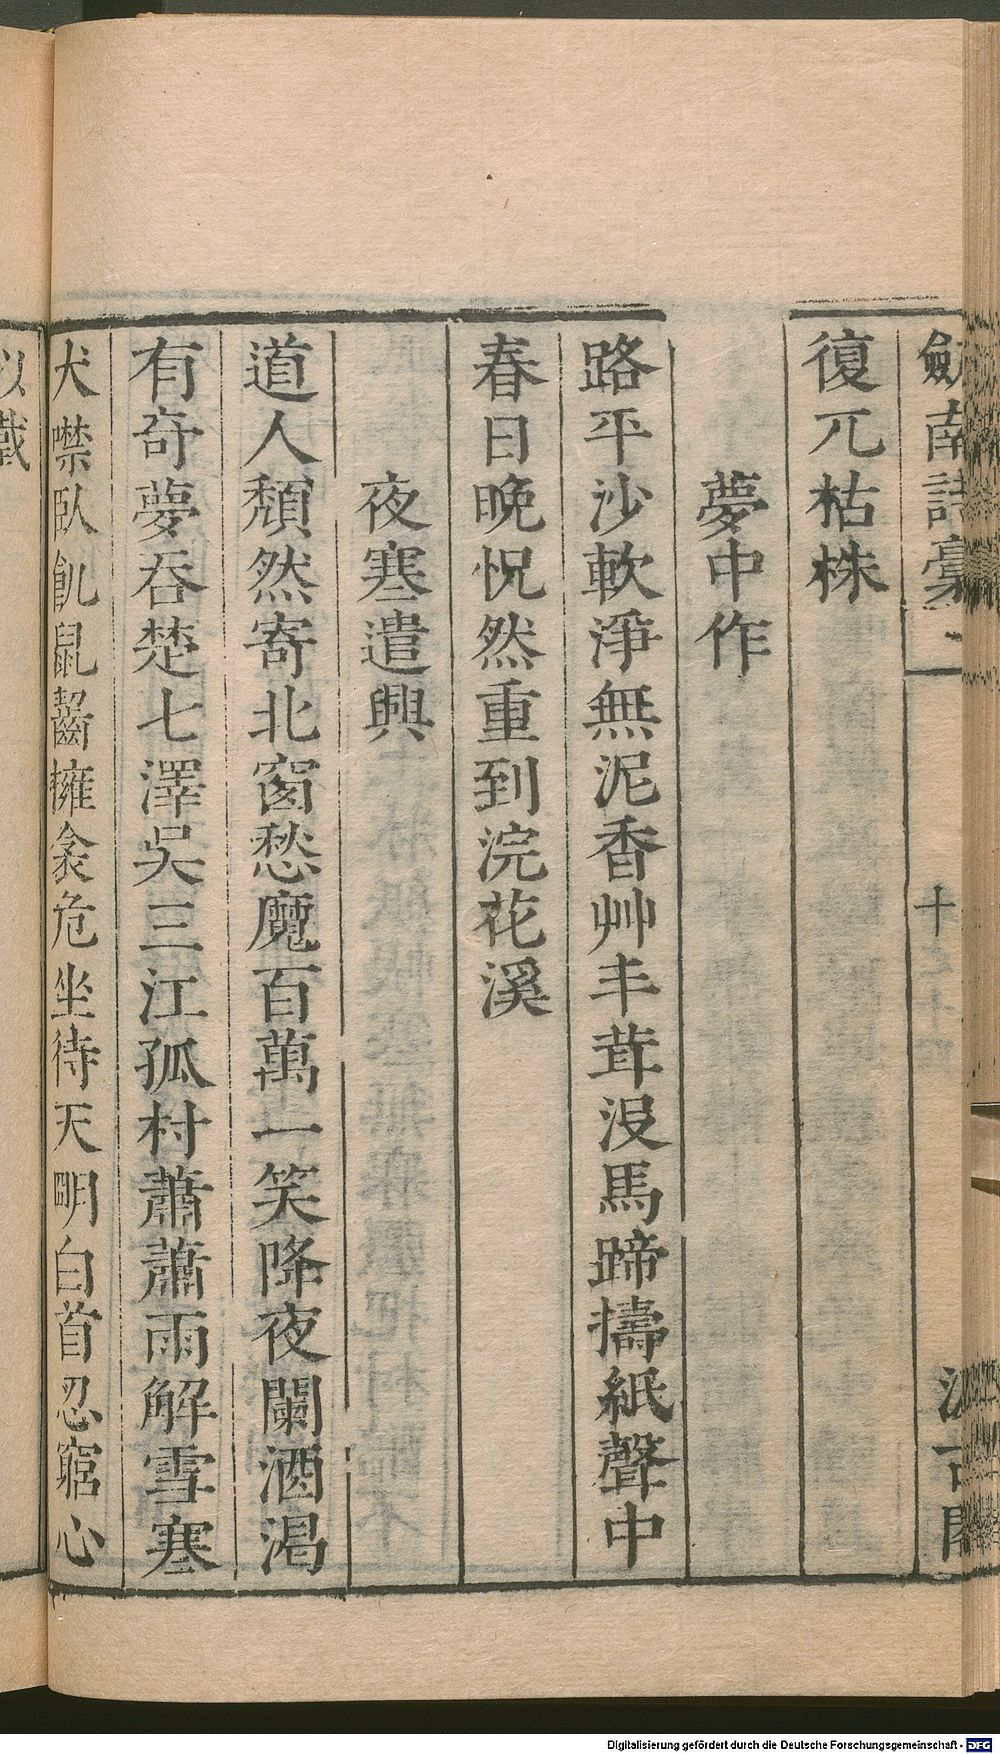 劒南詩稾
十
復兀枯株
夢中作
路平沙軟淨無泥香艸丰茸沒馬蹄擣紙聲中
春日晚怳然重到浣花溪
夜寒遣興
道人頹然寄北窗愁魔百萬一笑降夜闌酒渴
有奇夢吞楚七澤吳三江孤村蕭蕭雨解雪寒
犬噤臥飢鼠齧擁衾危坐待天明白首忍窮心
以戴
Digitalisierung gefördert durch die Deutsche Forschungsgemeinschaft - DFG